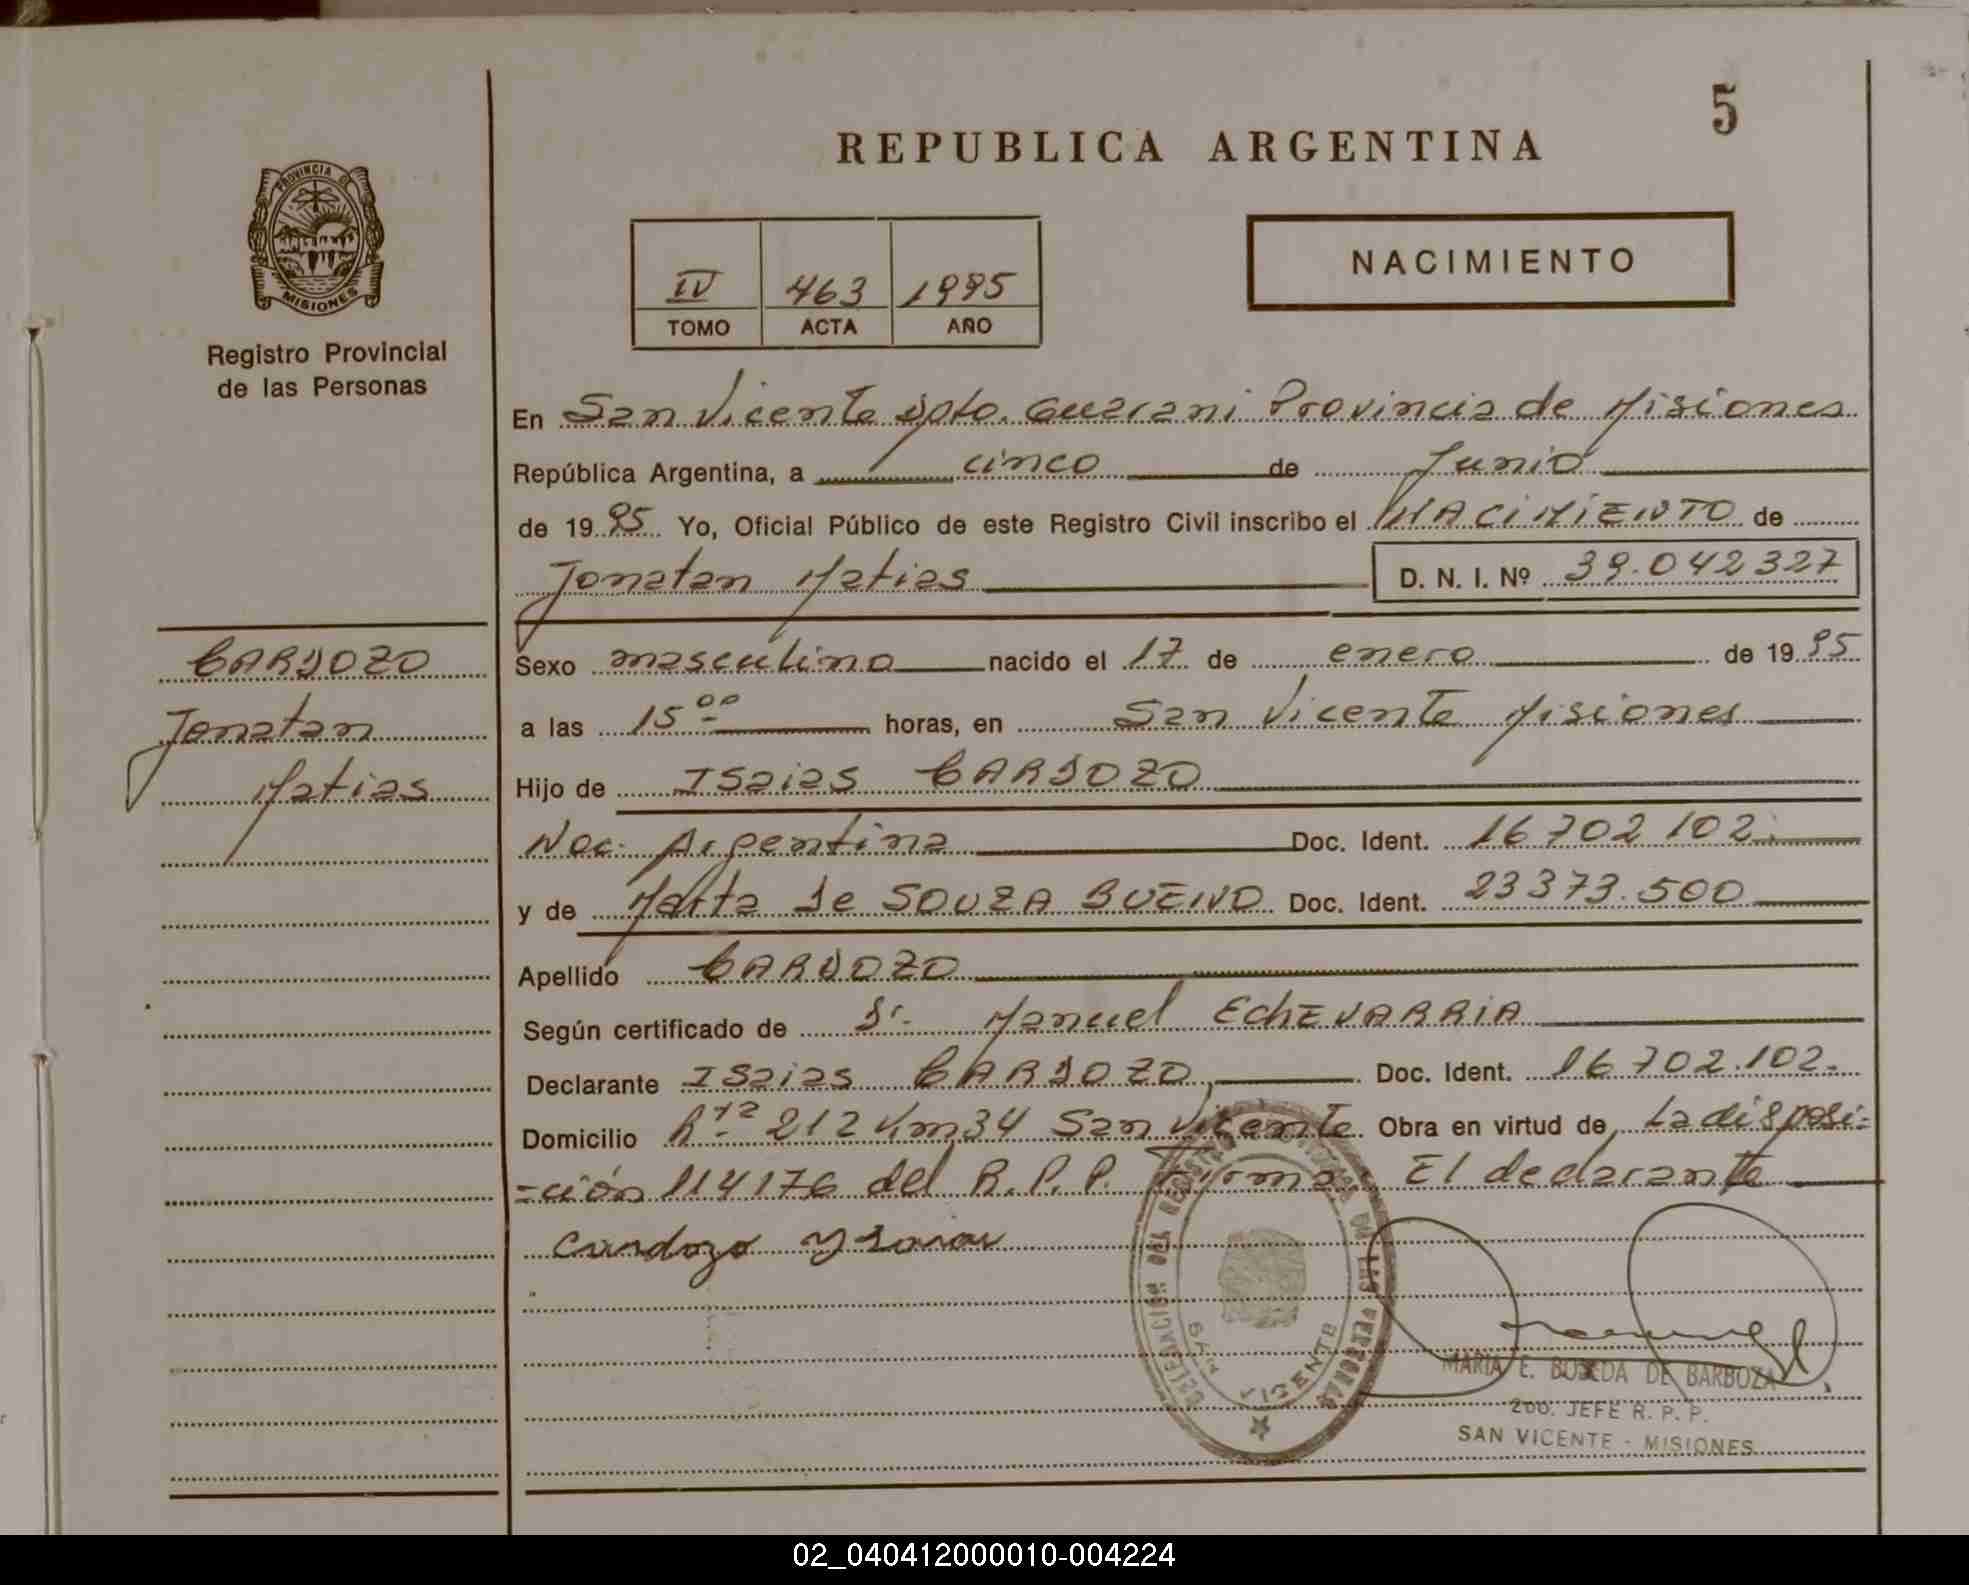 5
REPUBLICA ARGENTINA
PROVINCIA DE
MISIONES
Registro Provincial
de las Personas
IV 463 1995
TOMO ACTA AÑO
NACIMIENTO
En San Vicente Dpto. Guarani Provincia de Misiones
República Argentina, a cinco de Junio
de 1995 Yo, Oficial Público de este Registro Civil inscribo el NACIMIENTO de
Jonatan Matias D. N. I. Nº 39.042327
CARDOZO
Jonatan
Matias
Sexo masculino nacido el 17 de enero de 1995
a las 15 00 horas, en San Vicente Misiones
Hijo de Isaias CARDOZO
Nac. Argentina Doc. Ident. 16 702 102.
y de Marta De SOUZA BUENO Doc. Ident. 23373.500
Apellido CARDOZO
Según certificado de Dr. Manuel EchEVARRIA
Declarante Isaias CARDOZO, Doc. Ident. 16 702.102.
Domicilio Rta 212 Km 34 San Vicente Obra en virtud de La disposi=
=ción 114176 del R. P. P. Firma: El declarante
Cardozo Ysaias
DELEGACION DEL REGISTRO DE LAS PERSONAS
SAN VICENTE
MARIA E. BUSEDA DE BARBOZA
2DO. JEFE R. P. P.
SAN VICENTE - MISIONES
02_040412000010-004224